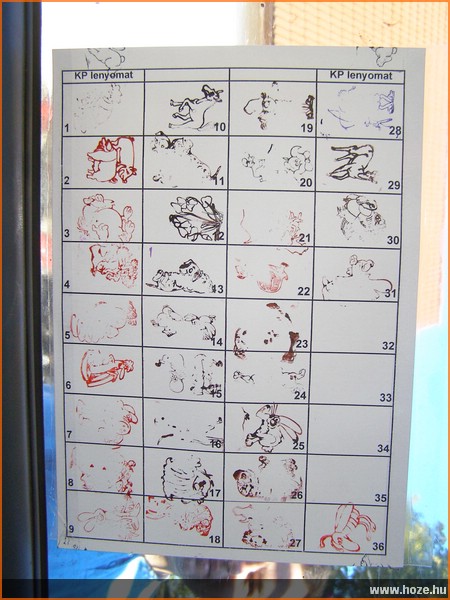 KP lenyomat KP lenyomat
1 10 19 28
2 11 20 29
3 12 21 30
4 13 22 31
5 14 23 32
6 15 24 33
7 16 25 34
8 17 26 35
9 18 27 36
www.hoze.hu